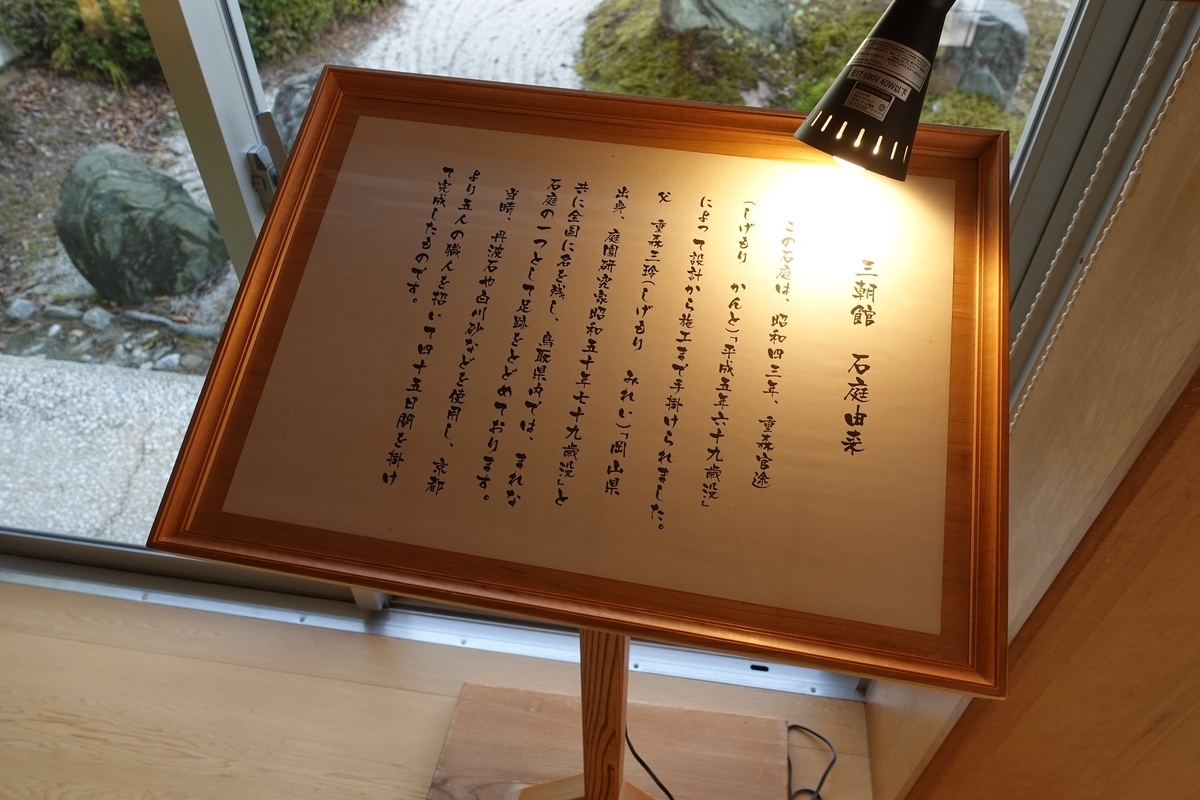 三朝館 石庭由来
この石庭は、昭和四三年、重森官途
(しげもり かんと)「平成五年六十九歳没」
によって設計から施工まで手掛けられました。
父 重森三玲(しげもり みれい)「岡山県
出身、庭園研究家昭和五十年七十九歳没」と
共に全国に名を残し、鳥取県内では、まれな
石庭の一つとして足跡をとどめております。
当時、丹波石や白川砂などを使用し、京都
より五人の職人を招いて四十五日間を掛け
て完成したものです。
E17 100V 40W以下